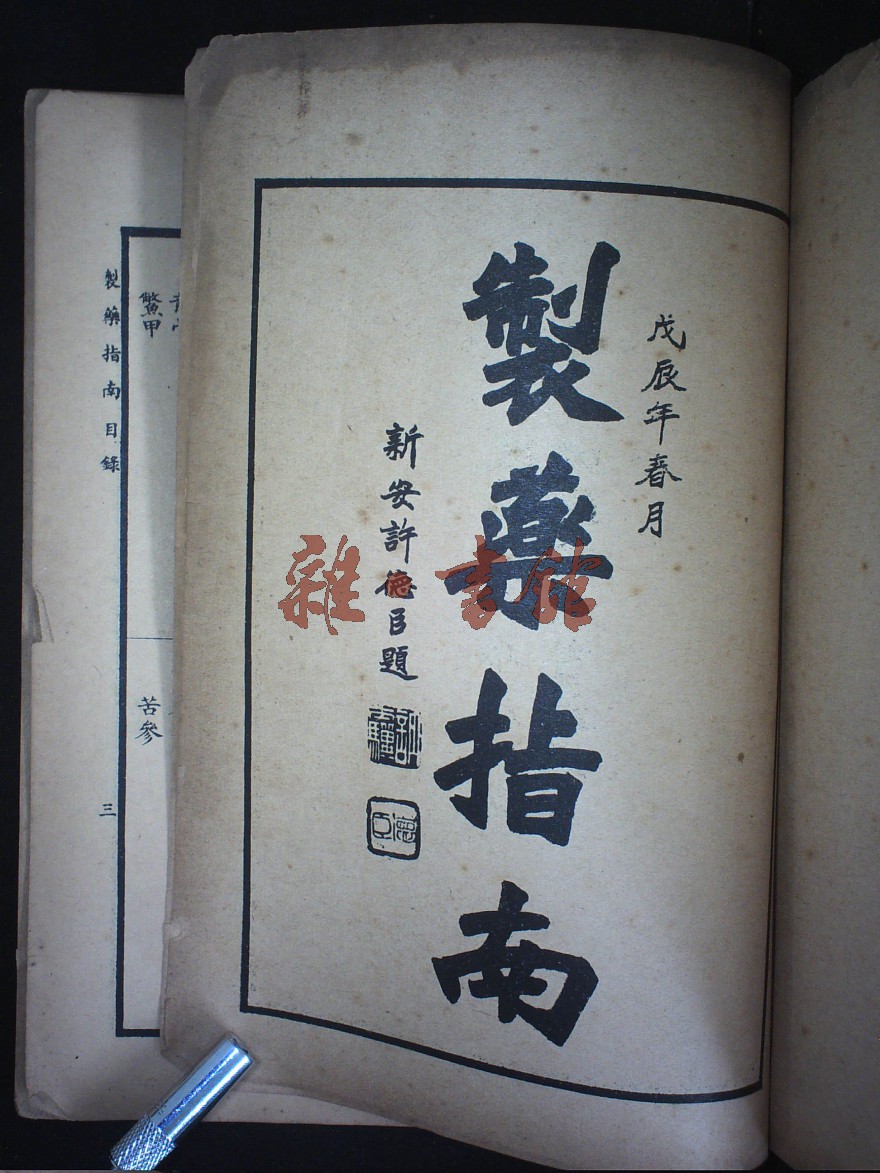 戊辰年春月
製藥指南
新安許德臣題
德臣
雜書館
鱉甲
苦參
製藥指南目錄
三